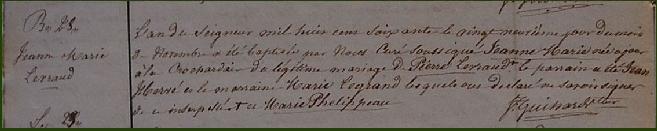 Bn 23e
Jeanne Marie
Lerraud
L'an du Seigneur mil huit cent soixante le vingt neuvième jour du mois
de Novembre a été baptisée par Nous Curé soussigné Jeanne Marie née à jour
à la de légitime mariage De Réné Lerraud le parrain a été Jean
Hervé et la marraine Marie Legrand lesquels ont déclaré ne savoir signer
de ce interpellés et de Marie Phelippeau